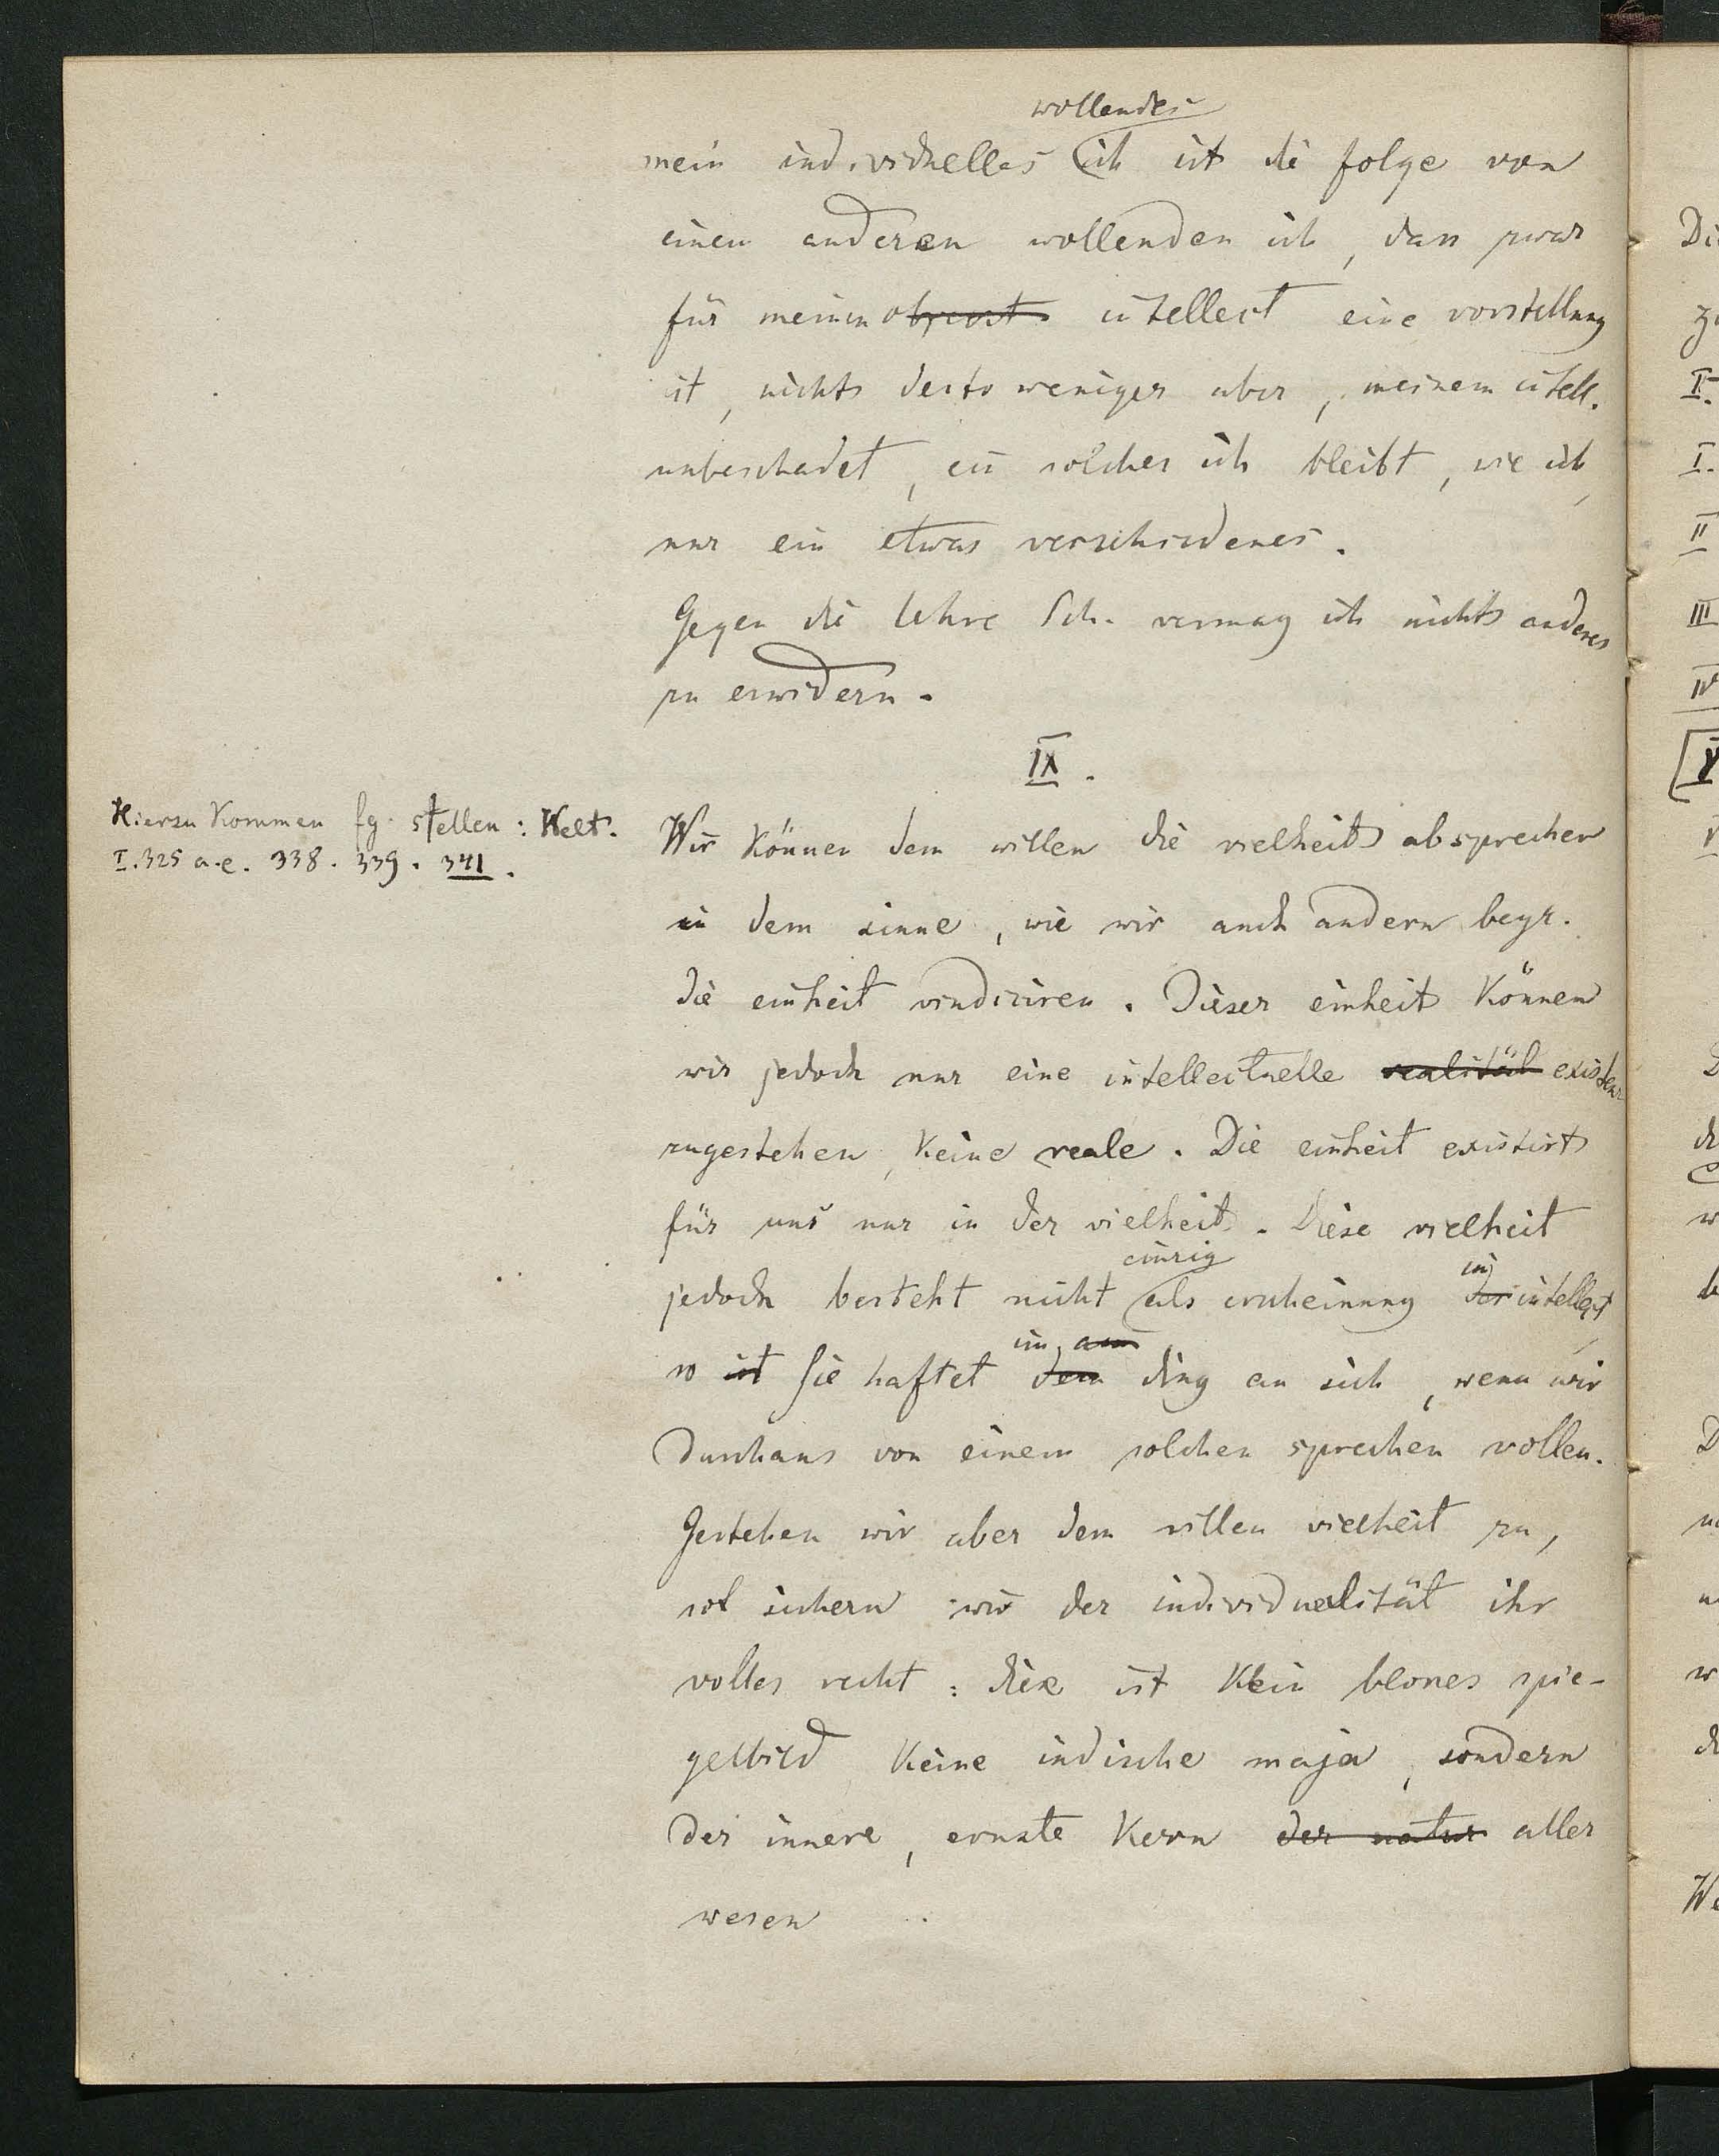 wollendes
mein individuelles ich ist die folge von
einem anderen wollenden ich, dass zwar
für meinen object intellect eine vorstellung
ist, nichts desto weniger aber, meinem intell.
unbeschadet, ein solches ich bleibt, wie ich,
nur ein etwas verschiedenes.
Gegen die lehre Sch. vermag ich nichts anderes
zu erwidern.
IX.
Hierzu kommen fg. stellen: Welt.
I. 325 a. e. 338. 339. 341.
Wir können dem willen die vielheit absprechen
in dem sinne, wie wir auch andern begr.
die einheit vindiciren. Dieser einheit können
wir jedoch nur eine intellectuelle realität existenz
zugestehen, keine reale. Die einheit existirt
für uns nur in der vielheit. Diese vielheit
einzig im
jedoch besteht nicht als erscheinung der intellect,
im am
so ist Sie haftet dem ding an sich, wenn wir
durchaus von einem solchen sprechen wollen.
Gestehen wir aber dem willen vielheit zu,
so sichern wir der individualität ihr
volles recht: diese ist kein blosses spie-
gelbild, keine indische maja, sondern
der innere, ernste kern der natur aller
wesen.
Di
I.
I.
II
III
IV
V
D
We